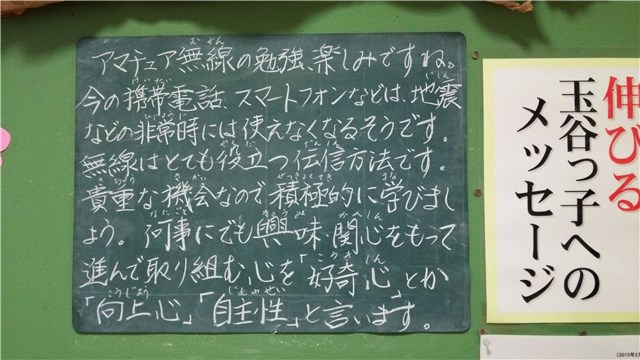 アマチュア無線の勉強、楽しみですね。
今の携帯電話、スマートフォンなどは、地震
などの非常時には使えなくなるそうです。
無線はとても役立つ伝信方法です。
貴重な機会なので積極的に学びまし
ょう。何事にでも興味・関心をもって
進んで取り組む心を「好奇心」とか
「向上心」「自主性」と言います。
伸びる
玉谷っ子への
メッセージ